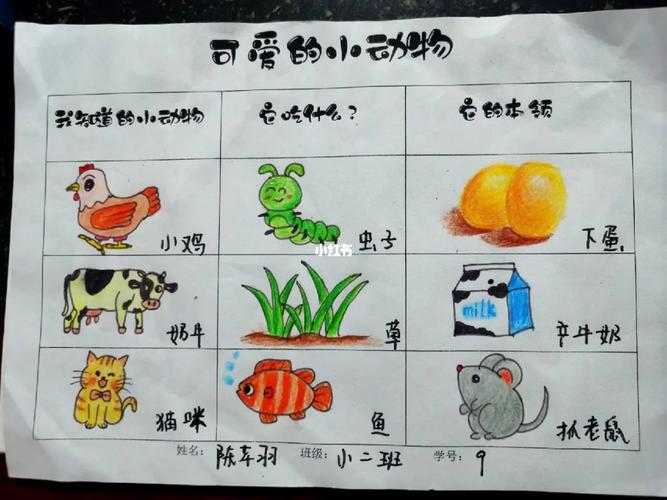 可爱的小动物
我知道的小动物 它吃什么? 它的本领
小鸡 虫子 下蛋
小红书
奶牛 草 milk 产牛奶
猫咪 鱼 抓老鼠
姓名: 班级: 小二班 学号: 9